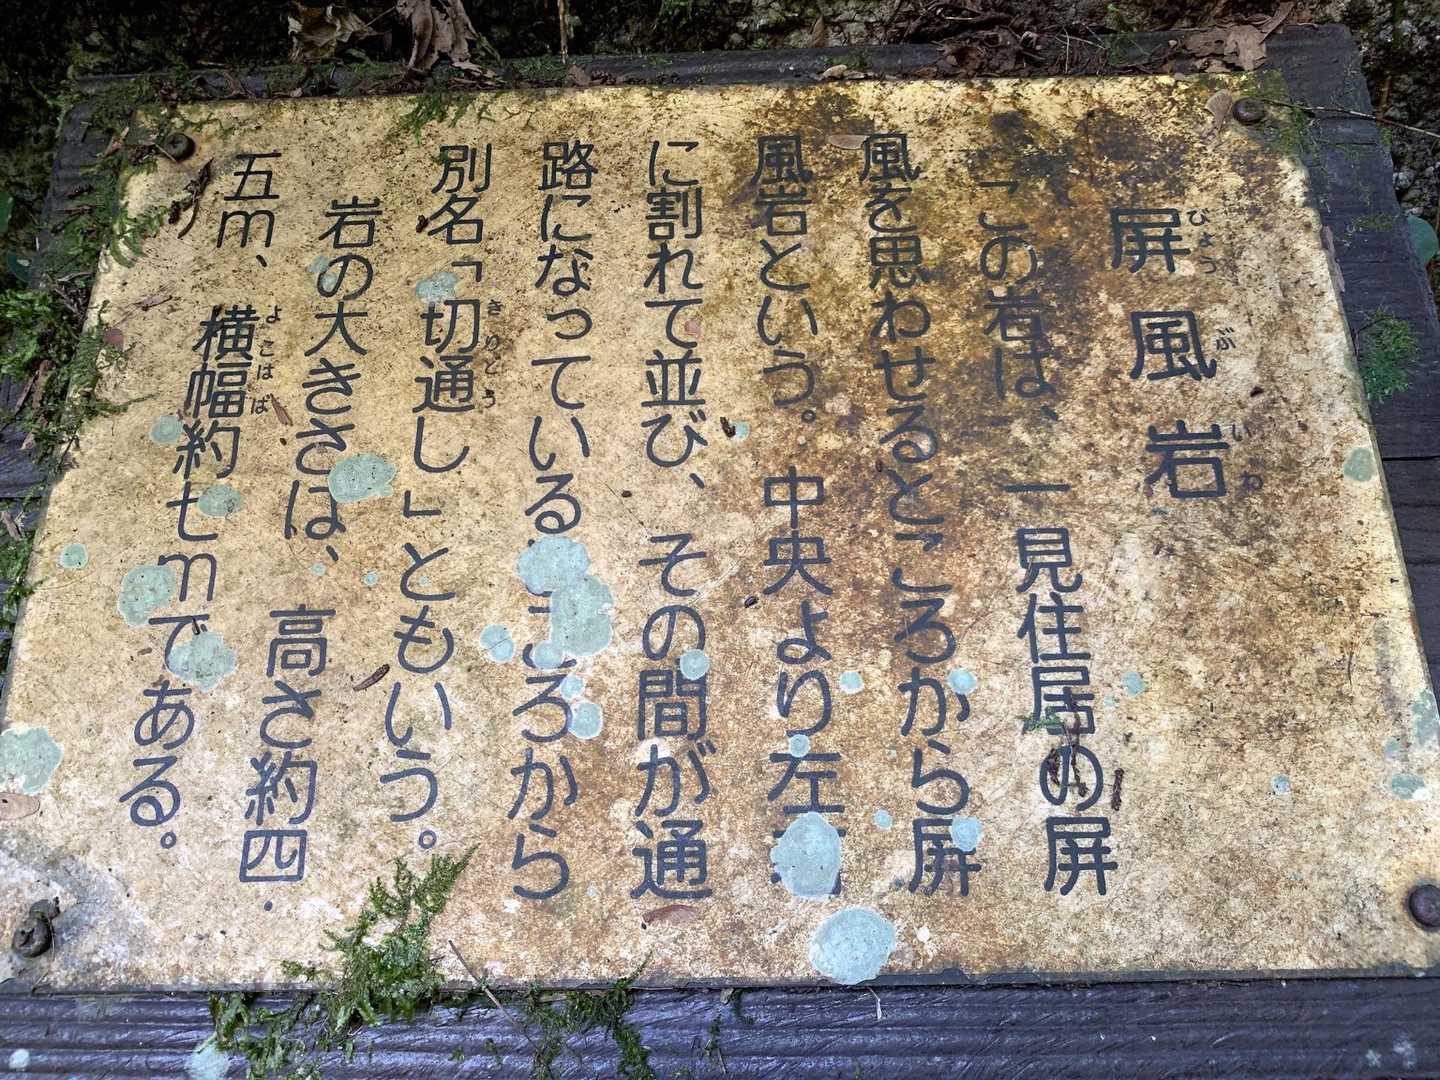 びょう ぶ いわ
屏風岩
この岩は、一見住居の屏
風を思わせるところから屏
風岩という。中央より左右
に割れて並び、その間が通
路になっているところから
きりとう
別名「切通し」ともいう。
岩の大きさは、高さ約四.
よこはば
五m、横幅約七mである。